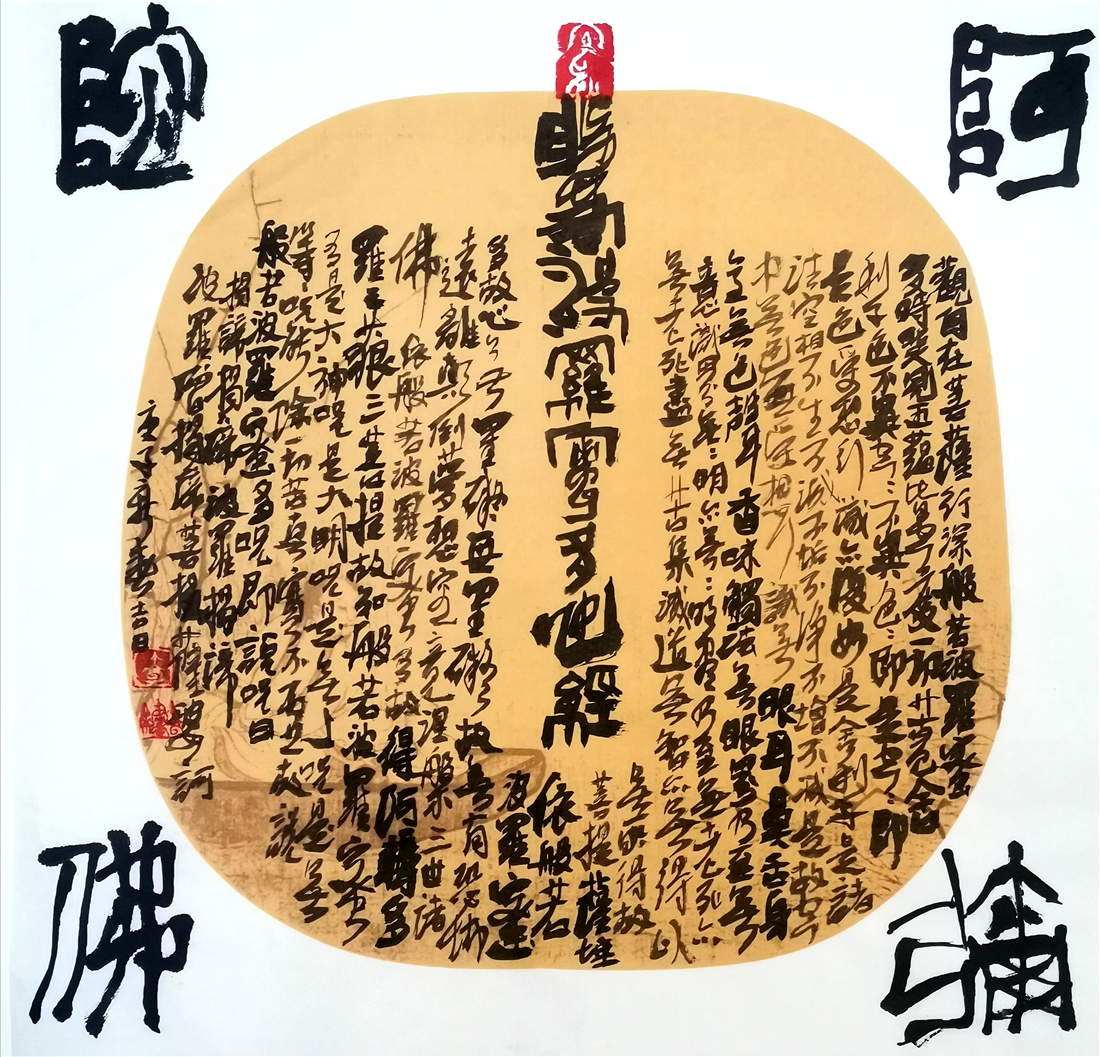 阿
彌
陀
佛
觀自在菩薩行深般若波羅蜜
多時照見五蘊皆空度一切苦厄舍
利子色不異空〻不異色〻即是空〻即
是色受想行識亦復如是舍利子是諸
法空相不生不滅不垢不淨不增不減是故空
中無色無受想行識無眼耳鼻舌身
意無色聲香味觸法無眼界乃至無
意識界無無明亦無無明盡乃至無老死亦
無老死盡無苦集滅道無智亦無得以
無所得故
菩提薩埵
般若波羅蜜多心經
依般若
波羅蜜
多故心無罣礙無罣礙故無有恐怖
遠離顛倒夢想究竟涅槃三世諸
佛依般若波羅蜜多故得阿耨多
羅三藐三菩提故知般若波羅蜜多
是大神咒是大明咒是無上咒是無
等等咒能除一切苦真實不虛故說
般若波羅蜜多咒即說咒曰
揭諦揭諦波羅揭諦
波羅僧揭諦菩提薩婆訶
庚子年春吉日